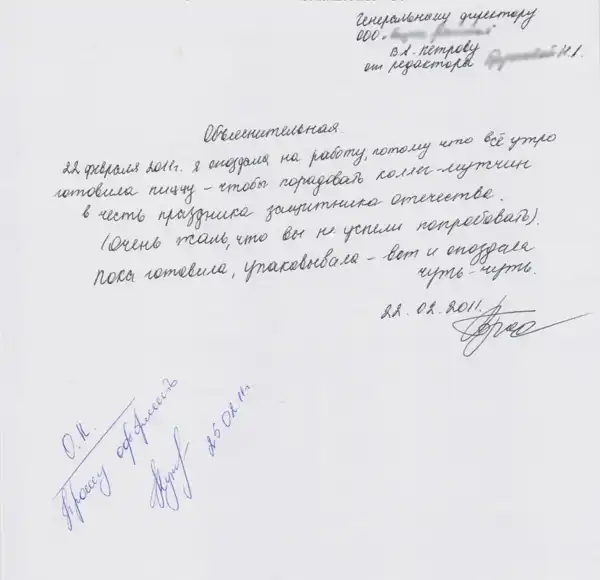 Генеральному директору
ООО "
В.А. Петрову
от редактора Н.А.
Объяснительная
22 февраля 2011г. я опоздала на работу, потому что всё утро
готовила пиццу – чтобы порадовать коллег-мужчин
в честь праздника защитника отечества.
(Очень жаль, что вы не успели попробовать).
Пока готовила, упаковывала – вот и опоздала
чуть-чуть.
22.02.2011.
О.К.
Прошу оформить
25.02.11г.